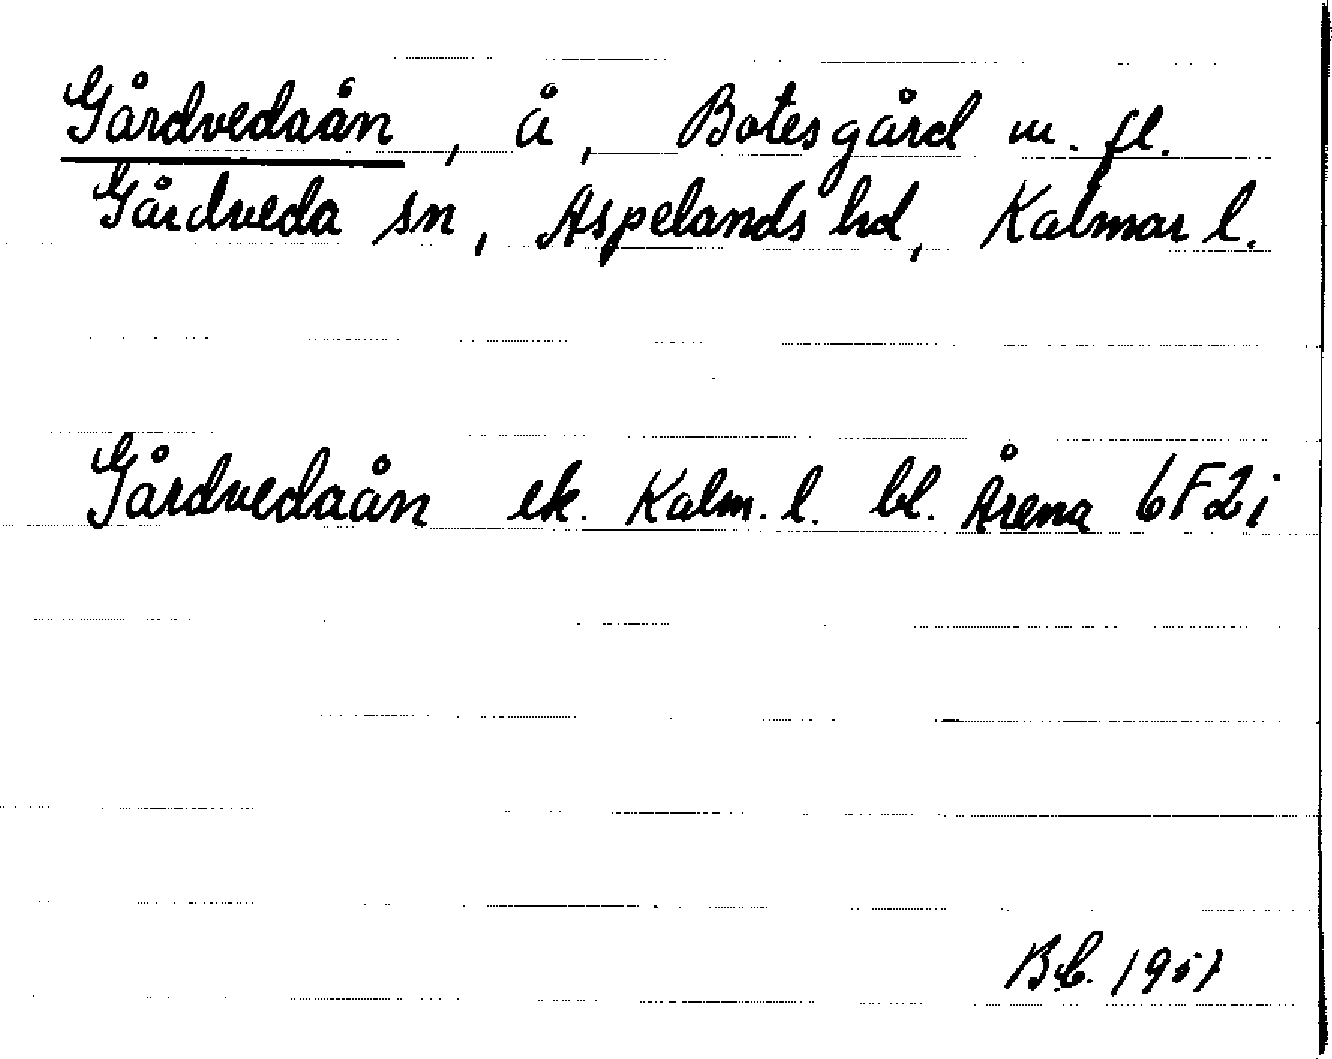 Gårdvedaån, å, Botesgård m. fl.
Gårdveda sn, Aspelands hd, Kalmar l.
Gårdvedaån ek. Kalm. l. bl. Årena 6F2i
1951